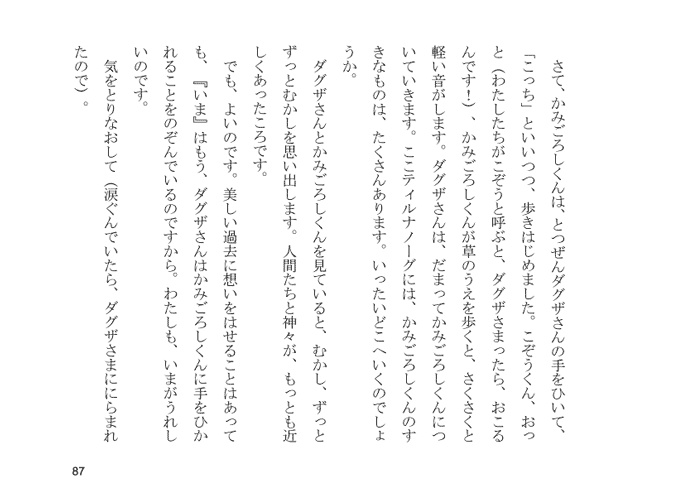 さて、かみごろしくんは、とつぜんダグザさんの手をひいて、
「こっち」といいつつ、歩きはじめました。こぞうくん、おっ
と（わたしたちがこぞうと呼ぶと、ダグザさまったら、おこる
んです！）、かみごろしくんが草のうえを歩くと、さくさくと
軽い音がします。ダグザさんは、だまってかみごろしくんにつ
いていきます。ここティルナノーグには、かみごろしくんのす
きなものは、たくさんあります。いったいどこへいくのでしょ
うか。
　ダグザさんとかみごろしくんを見ていると、むかし、ずっと
ずっとむかしを思い出します。人間たちと神々が、もっとも近
しくあったころです。
　でも、よいのです。美しい過去に想いをはせることはあって
も、『いま』はもう、ダグザさんはかみごろしくんに手をひか
れることをのぞんでいるのですから。わたしも、いまがうれし
いのです。
　気をとりなおして（涙ぐんでいたら、ダグザさまににらまれ
たので）。
87